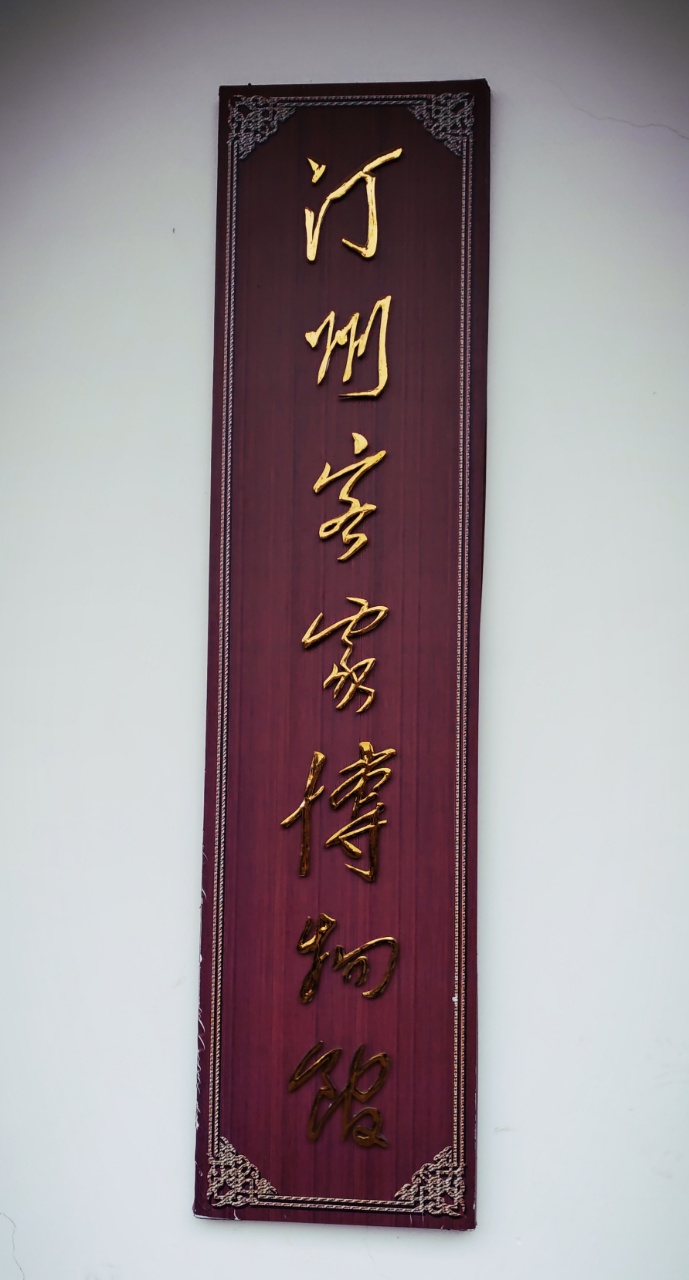 汀州客家博物馆